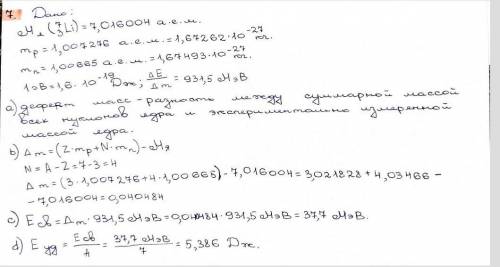 7. Дано:
Mя (⁷₃Li) = 7,016004 а.е.м.
mp = 1,007276 а.е.м. = 1,67262·10⁻²⁷ кг.
mn = 1,00665 а.е.м. = 1,67493·10⁻²⁷ кг.
1эВ = 1,6·10⁻¹⁹ Дж; ΔE/Δm = 931,5 МэВ
a) дефект масс - разность между суммарной массой
всех нуклонов ядра и экспериментально измеренной
массой ядра.
b) Δm = (Z·mp + N·mn) - Mя
N = A - Z = 7 - 3 = 4
Δm = (3·1,007276 + 4·1,00665) - 7,016004 = 3,021828 + 4,03466 -
- 7,016004 = 0,040484
c) Eсв = Δm · 931,5 МэВ = 0,040484 · 931,5 МэВ = 37,7 МэВ.
d) Eуд = Eсв/A = 37,7 МэВ/7 = 5,386 Дж.